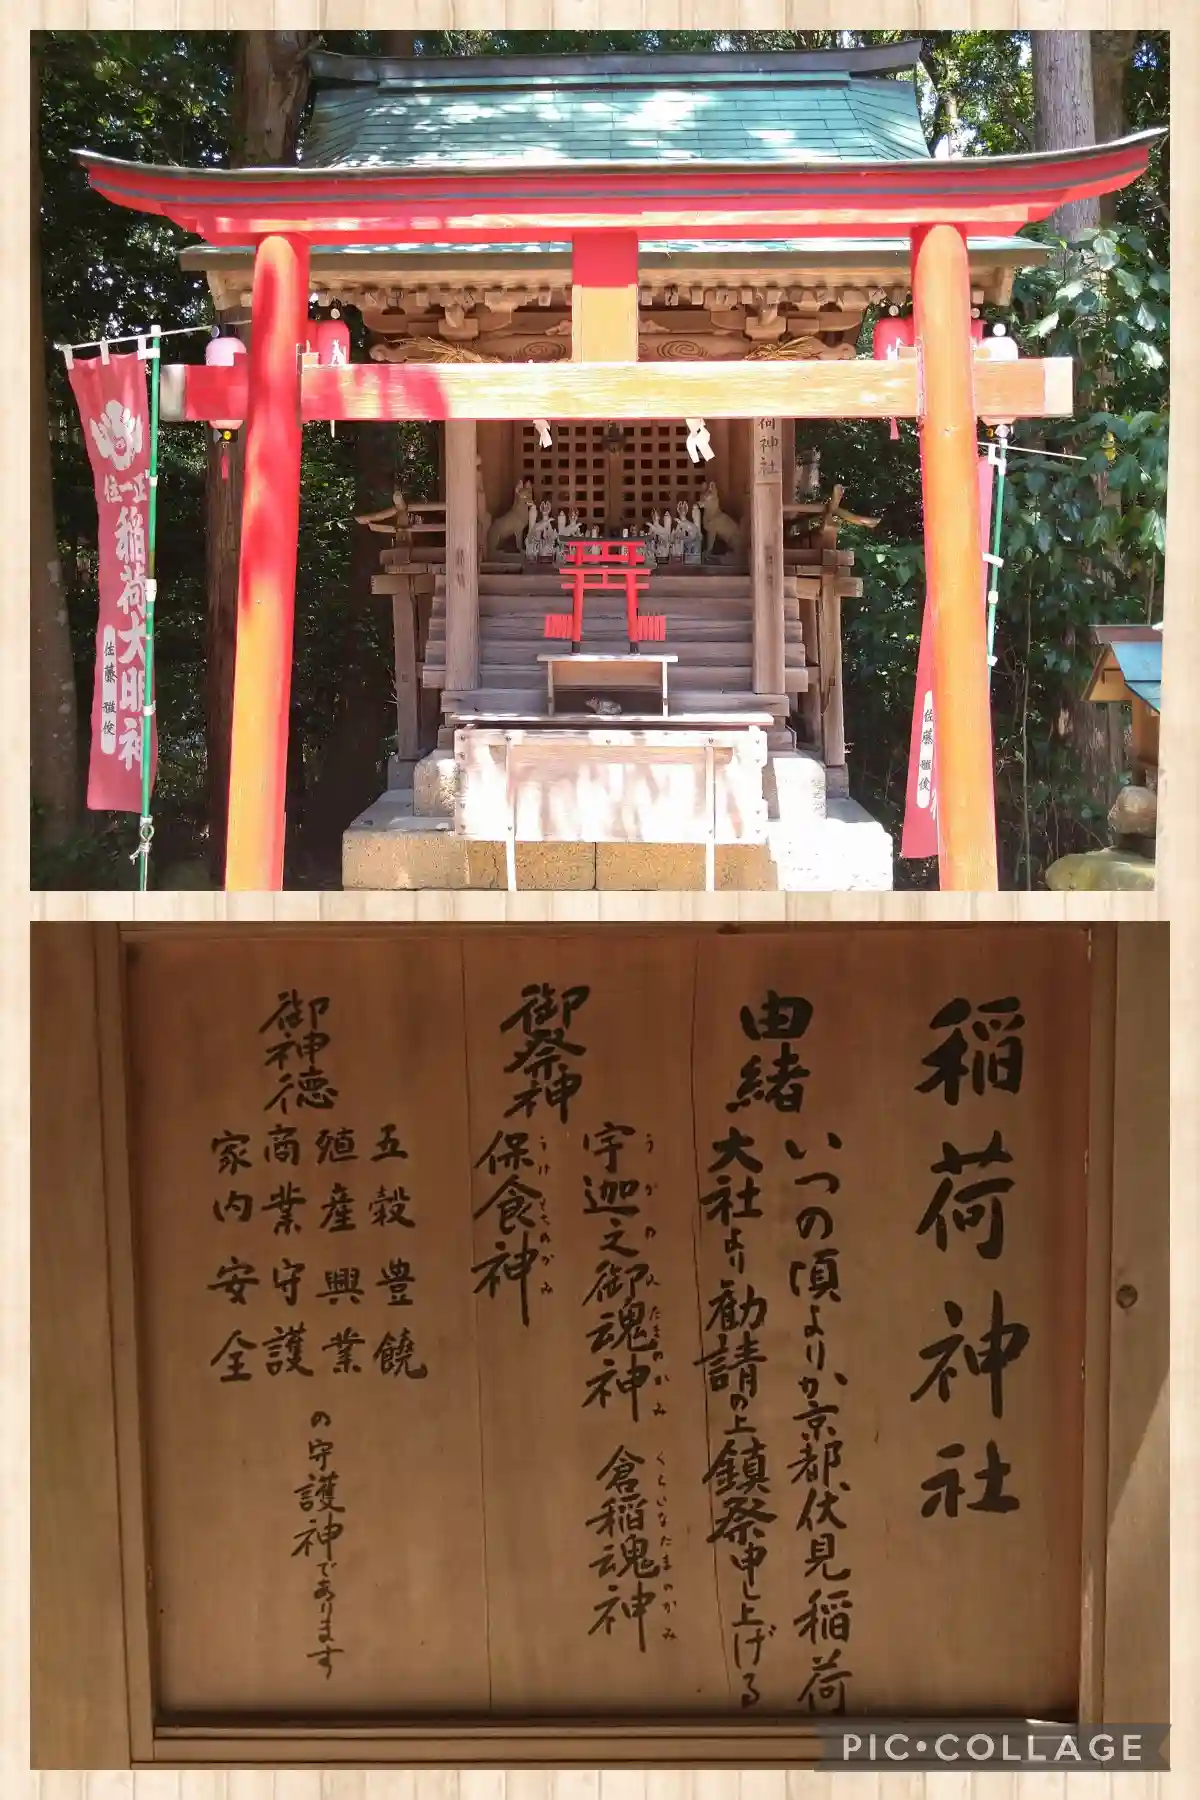 正一位
稲荷大明神
佐藤
荷神社
佐藤
稲荷神社
由緒
いつの頃よりか京都伏見稲荷
大社より勧請の上鎮祭申し上げる
御祭神
宇迦之御魂神 倉稲魂神
うかのみたまのかみ くらいなたまのかみ
保食神
うけもちのかみ
御神徳
五穀豊饒
殖産興業
商業守護
家内安全
の守護神であります
PIC•COLLAGE